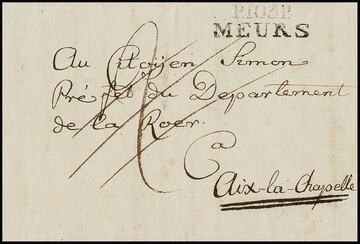 P103P
MEURS
Au Citoyen Simon
Préfet du Departement
de la Roer.
a
Aix-la-Chapelle